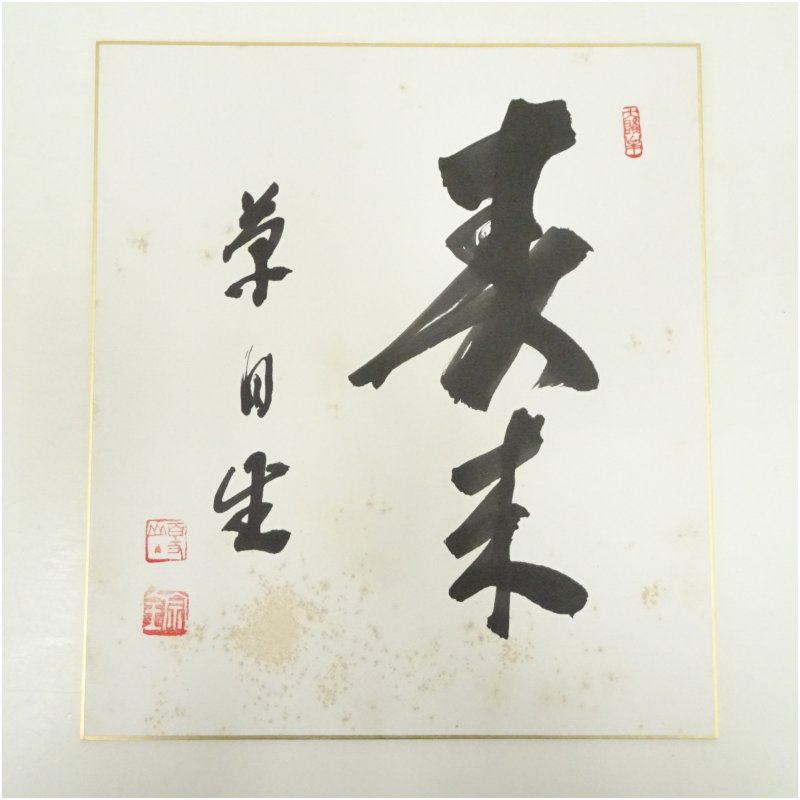 春来
草自生